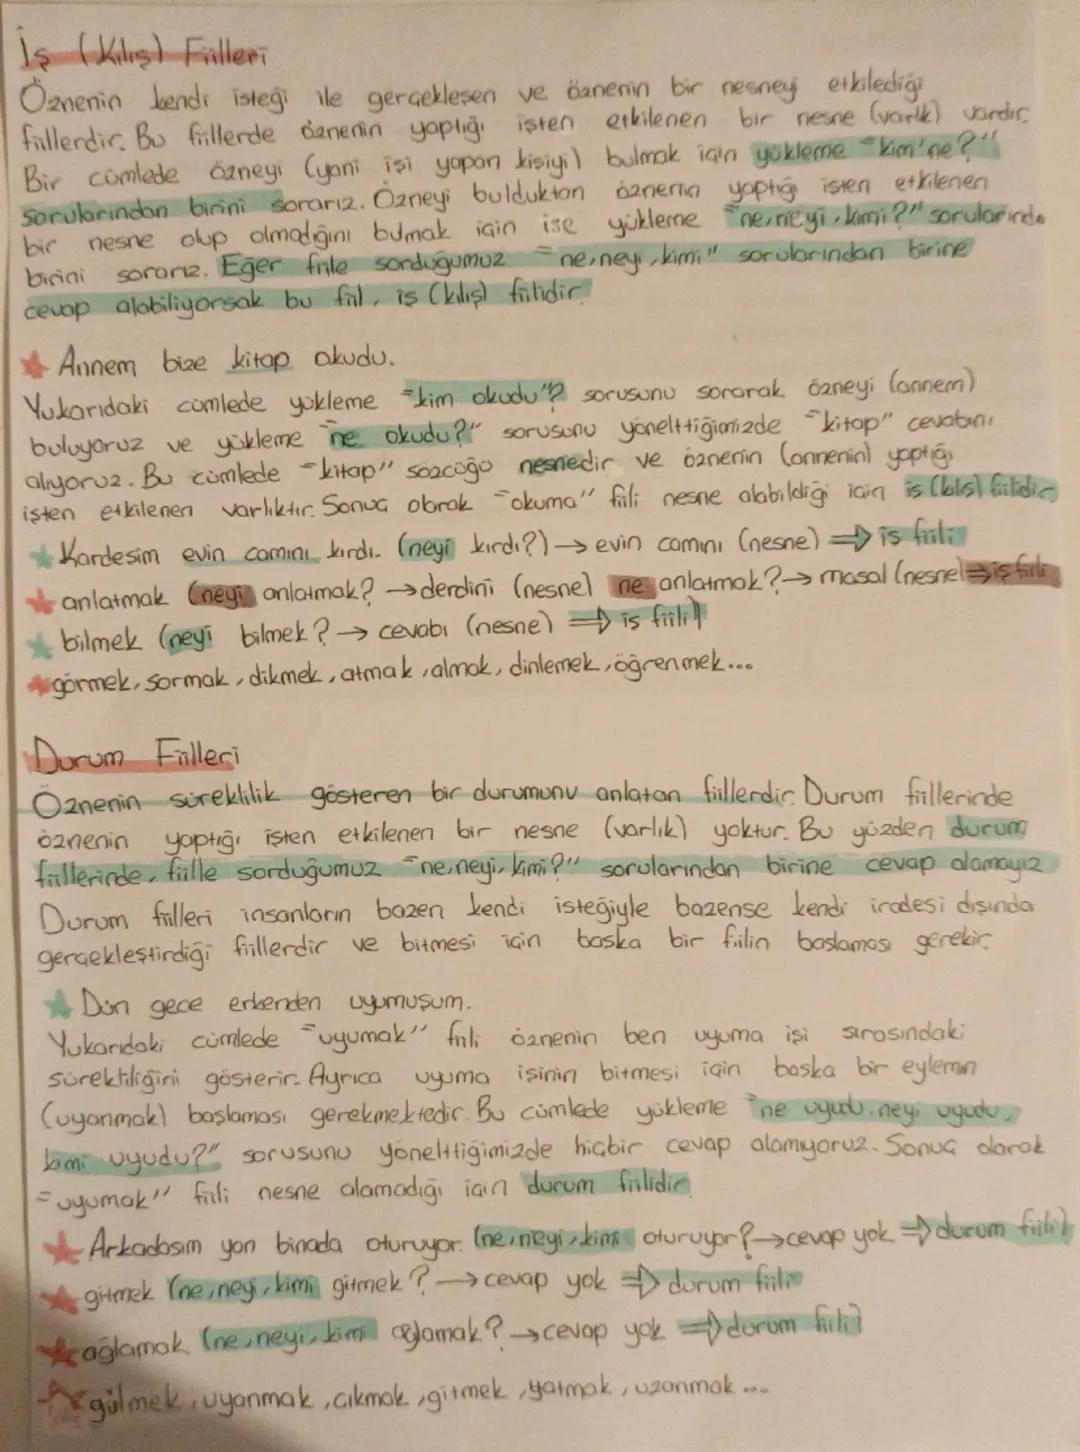 İş (Kılış) Fiilleri
Öznenin kendi isteği ile gerçekleşen ve öznenin bir nesneyi etkilediği
fiillerdir. Bu fiillerde öznenin yaptığı işten etkilenen bir nesne (varlık) vardır.
Bir cümlede özneyi (yani işi yapan kişiyi) bulmak için yükleme "kim'ne?"
sorularından birini sorarız. Özneyi bulduktan öznenin yaptığı işten etkilenen
bir nesne olup olmadığını bulmak için ise yükleme "ne, neyi, kimi?" sorularında
birini sorarız. Eğer fiile sorduğumuz "ne, neyi, kimi" sorularından birine
cevap alabiliyorsak bu fiil, iş (kılış) fiilidir.
Annem bize kitap okudu.
Yukarıdaki cümlede yükleme "kim okudu"? sorusunu sorarak özneyi (annem)
buluyoruz ve yükleme "ne okudu?" sorusunu yönelttiğimizde "kitap" cevabını
alıyoruz. Bu cümlede "kitap" sözcüğü nesnedir ve öznenin (annenin) yaptığı
işten etkilenen varlıktır. Sonuç olarak "okuma" fiili nesne alabildiği için iş (kılış) fiilidir.
Kardeşim evin camını kırdı. (neyi kırdı?) → evin camını (nesne) ⇒ iş fiili
anlatmak (neyi anlatmak? → derdini (nesne) ne anlatmak? → masal (nesne) ⇒ iş fiili
bilmek (neyi bilmek? → cevabı (nesne) ⇒ iş fiili)
görmek, sormak, dikmek, atmak, almak, dinlemek, öğrenmek...
Durum Fiilleri
Öznenin süreklilik gösteren bir durumunu anlatan fiillerdir. Durum fiillerinde
öznenin yaptığı işten etkilenen bir nesne (varlık) yoktur. Bu yüzden durum
fiillerinde, fiille sorduğumuz "ne, neyi, kimi?" sorularından birine cevap alamayız
Durum fiilleri insanların bazen kendi isteğiyle bazense kendi iradesi dışında
gerçekleştirdiği fiillerdir ve bitmesi için başka bir fiilin başlaması gerekir.
Dün gece erkenden uyumuşum.
Yukarıdaki cümlede "uyumak" fiili öznenin ben uyuma işi sırasındaki
sürekliliğini gösterir. Ayrıca uyuma işinin bitmesi için başka bir eylemin
(uyanmak) başlaması gerekmektedir. Bu cümlede yükleme "ne uyudu, neyi uyudu,
kimi uyudu?" sorusunu yönelttiğimizde hiçbir cevap alamıyoruz. Sonuç olarak
"uyumak" fiili nesne alamadığı için durum fiilidir.
Arkadaşım yan binada oturuyor. (ne, neyi, kimi oturuyor? → cevap yok ⇒ durum fiili)
gitmek (ne, neyi, kimi gitmek? → cevap yok ⇒ durum fiili
ağlamak (ne, neyi, kimi ağlamak? → cevap yok ⇒ durum fiili)
gülmek, uyanmak, çıkmak, gitmek, yatmak, uzanmak...